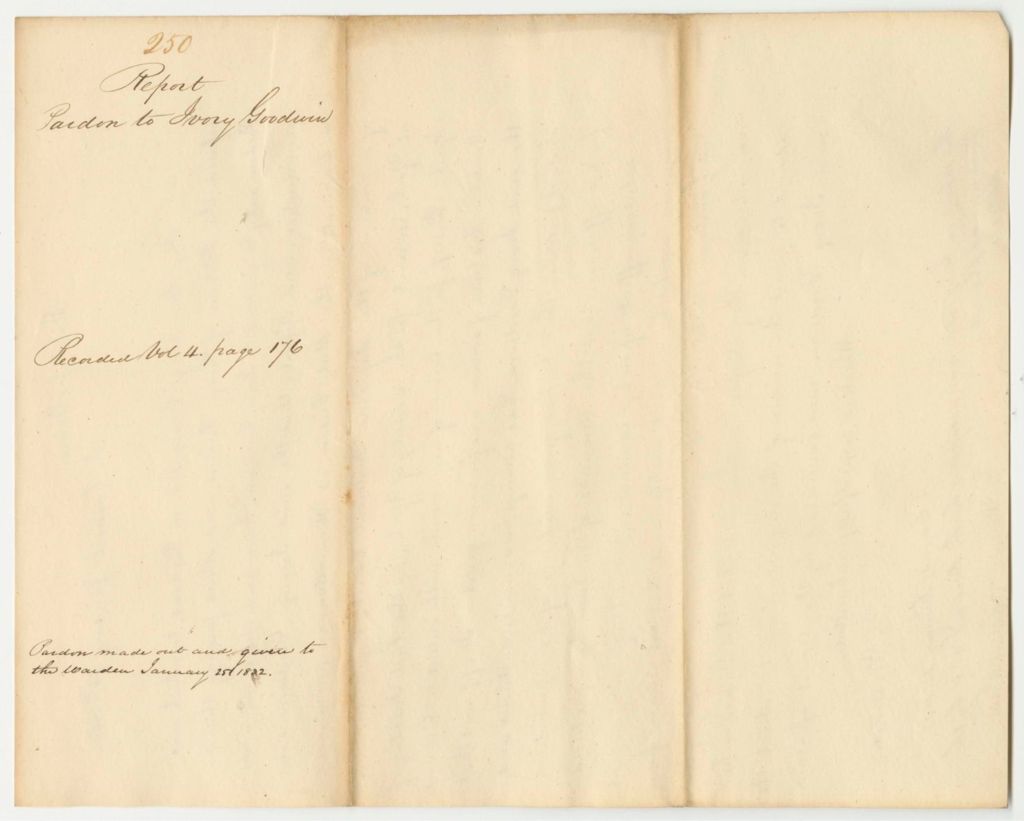 250
Report
Pardon to Ivory Goodwin
Recorded Vol 4. page 176
Pardon made out and given to
the Warden January 25 1832.